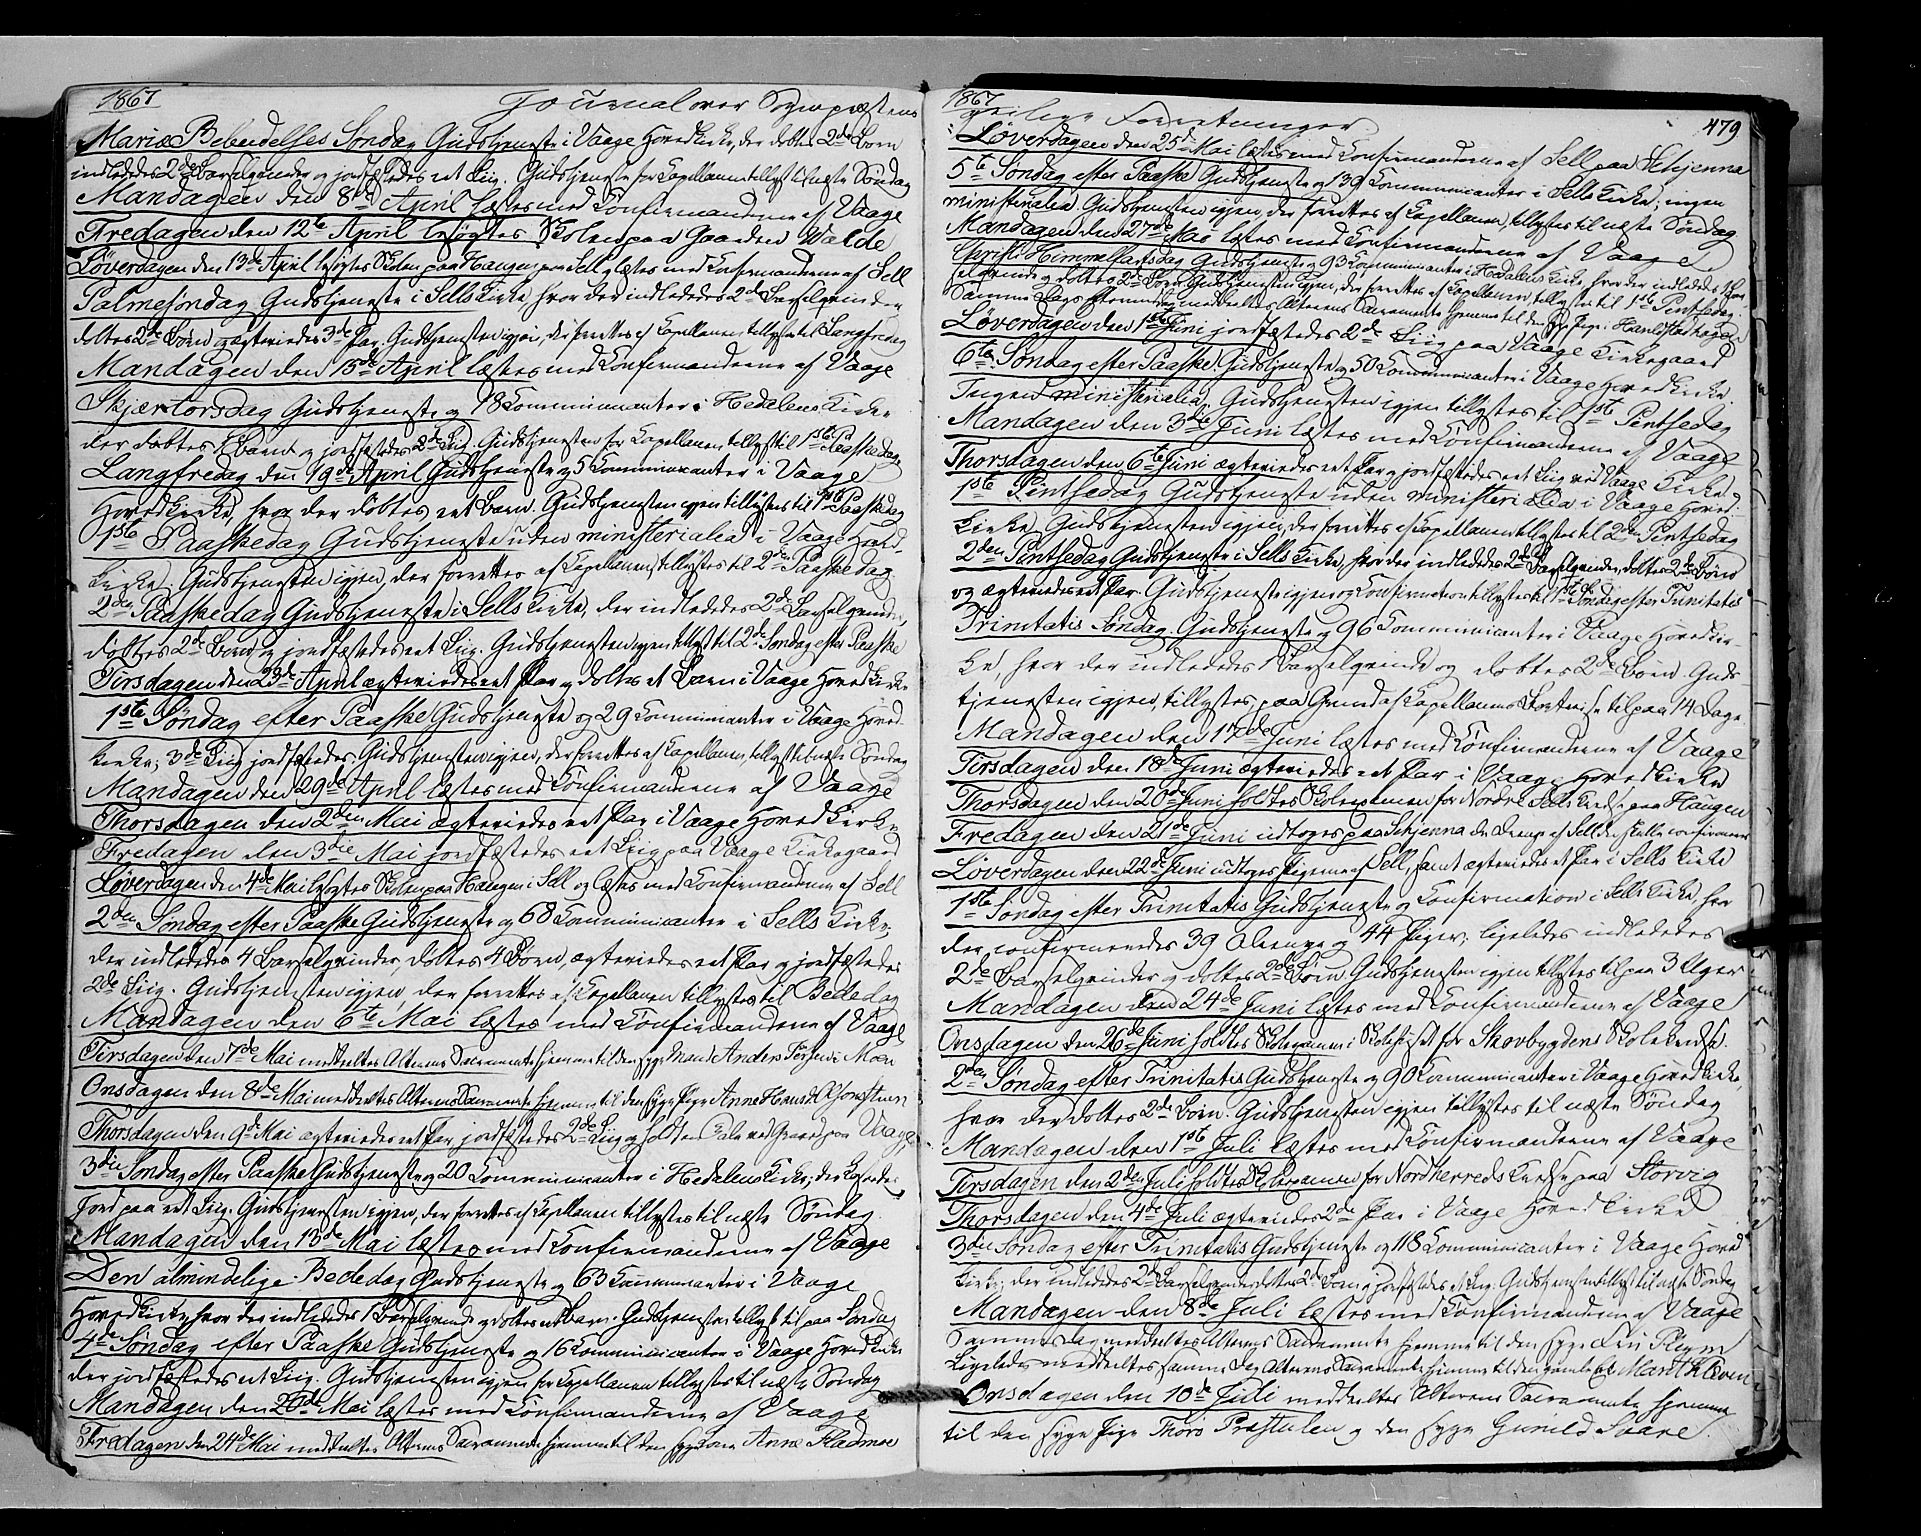 1867 Journal over Sognepræstens
Mariæ Bebudelses Søndag Gudstjeneste i Vaage Hovedkirke, der døbtes 2de Børn
indlededes 2de Barselqvinder og jordfæstedes et Liig. Gudstjeneste for Kapellanen tillyst til næste Søndag
Mandagen den 8de April læstes med Confirmanderne af Vaage
Fredagen den 12te April besøgtes Skolen paa Gaarden Valde
Løverdagen den 13de April besøgtes Skolen paa Haugen paa Sell og læstes med Confirmanderne af Sell
Palmesøndag Gudstjeneste i Sells Kirke, hvor der indlededes 2de Barselqvinder
døbtes 2de Børn og ægteviedes 3de Par, Gudstjenesten igjen, der forrettes af Kapellanen, tillystes til Langfredag
Mandagen den 15de April læstes med Confirmanderne af Vaage
Skjærtorsdag Gudstjeneste og 18 Kommunicanter i Hedalens Kirke
der døbtes 1 Barn og jordfæstedes 2de Liig. Gudstjenesten for Kapellanen tillyst til 1ste Paaskedag
Langfredag den 19de April Gudstjeneste og 5 Kommunicanter i Vaage
Hovedkirke, hvor der døbtes et Barn. Gudstjenesten igjen tillystes til 1ste Paaskedag
1ste Paaskedag Gudstjeneste uden ministerialia i Vaage Hoved-
kirke. Gudstjenesten igjen, der forrettes af Kapellanen, tillystes til 2den Paaskedag
2den Paaskedag Gudstjeneste i Sells Kirke, der indlededes 2de Barselqvinder,
døbtes 2de Børn og jordfæstedes et Liig. Gudstjenesten igjen tillyst til 2den Søndag efter Paaske
Tirsdagen den 23de April ægteviedes et Par og døbtes et Barn i Vaage Hovedkirke
1ste Søndag efter Paaske Gudstjeneste og 29 Kommunicanter i Vaage Hoved-
kirke; 3de Liig jordfæstedes. Gudstjenesten igjen, der forrettes af Kapellanen, tillyst til næste Søndag
Mandagen den 29de April læstes med Confirmanderne af Vaage
Thorsdagen den 2den Mai ægteviedes et Par i Vaage Hovedkirke
Fredagen den 3die Mai jordfæstedes et Liig paa Vaage Kirkegaard
Løverdagen den 4de Mai besøgtes Skolen paa Haugen i Sell og læstes med Confirmanderne af Sell
2den Søndag efter Paaske Gudstjeneste og 68 Kommunicanter i Sells Kirke;
der indlededes 4 Barselqvinder, døbtes 4 Børn, ægteviedes et Par og jordfæstedes
2de Liig. Gudstjenesten igjen, der forrettes af Kapellanen tillystes til Bededag
Mandagen den 6te Mai læstes med Confirmanderne af Vaage
Tirsdagen den 7de Mai meddeeltes Alterens Sacramente hjemme til den syge Mand Anders Tørsen i Moen
Onsdagen den 8de Mai meddeeltes Alterens Sacramente hjemme til den syge Pige Anne Hansd.
Thorsdagen den 9de Mai ægteviedes et Par, jordfæstedes 2de Liig og holdt en Tale ved Graven paa Vaage
3die Søndag efter Paaske Gudstjeneste og 20 Kommunicanter i Hedalens Kirke; der kastedes
Jord paa et Liig. Gudstjenesten igjen, der forrettes af Kapellanen tillystes til næste Søndag.
Mandagen den 13de Mai læstes med Confirmanderne af Vaage
Den almindelige Bededag Gudstjeneste og 63 Kommunicanter i Vaage
Hovedkirke, hvor der indlededes 1 Barselqvinde og døbtes et Barn. Gudstjenesten tillyst til paa Søndag
4de Søndag efter Paaske Gudstjeneste og 16 Kommunicanter i Vaage Hovedkirke
der jordfæstedes et Liig. Gudstjenesten igjen for Kapellanen tillystes til næste Søndag
Mandagen den 20de Mai læstes med Confirmanderne af Vaage
Fredagen den 24de Mai meddeeltes Alterens Sacramente hjemme til den syge Kone Anne
1867 geistlige Forretninger. 479
Løverdagen den 25de Mai læstes med Confirmanderne af Sell paa Schjenna
5te Søndag efter Paaske Gudstjeneste og 139 Kommunicanter i Sells Kirke; ingen
ministerialia. Gudstjenesten igjen, der forrettes af Kapellanen, tillystes til næste Søndag
Mandagen den 27de Mai læstes med Confirmanderne af Vaage
Christi Himmelfartsdag Gudstjeneste og 93 Kommunicanter i Hedalens Kirke, hvor der indlededes 1 Bar-
selqvinde og døbtes 2de Børn. Gudstjenesten igjen, der forrettes af Kapellanen, tillystes til 1ste Pintsedag.
Samme Dags Eftermiddag meddeeltes Alterens Sacramente hjemme til den syge Pige
Løverdagen den 1ste Juni jordfæstedes 2de Liig paa Vaage Kirkegaard
6te Søndag efter Paaske Gudstjeneste og 50 Kommunicanter i Vaage Hovedkirke.
Ingen ministerialia. Gudstjenesten igjen tillystes til 1ste Pintsedag
Mandagen den 3die Juni læstes med Confirmanderne af Vaage
Thorsdagen den 6te Juni ægteviedes et Par og jordfæstedes et Liig ved Vaage Kirke
1ste Pintsedag Gudstjeneste uden ministerialia i Vaage Hoved-
kirke. Gudstjenesten igjen, der forrettes af Kapellanen tillystes til 2den Pintsedag
2den Pintsedag Gudstjeneste i Sells Kirke, hvor der indlededes 2de Barselqvinder, døbtes 2de Børn
og ægteviedes et Par. Gudstjeneste igjen og Confirmation tillystes til 1ste Søndag efter Trinitatis
Trinitatis Søndag. Gudstjeneste og 96 Kommunicanter i Vaage Hovedkir-
ke, hvor der indlededes 1 Barselqvinde og døbtes 2de Børn. Guds-
tjenesten igjen, tillystes, paa Grund af Kapellanens Bortreise til paa 14 Dage
Mandagen den 17de Juni læstes med Confirmanderne af Vaage
Tirsdagen den 18de Juni ægteviedes et Par i Vaage Hovedkirke
Thorsdagen den 20de Juni holdtes Skoleexamen for Nordre Sells Kreds paa Haugen
Fredagen den 21de Juni udtoges paa Schjenna de Drenge af Sell der skulle confirmeres
Løverdagen den 22de Juni udtoges Pigerne af Sell, samt ægteviedes et Par i Sells Kirke
1ste Søndag efter Trinitatis Gudstjeneste og Confirmation i Sells Kirke, hvor
der confirmeredes 39 Drenge og 44 Piger; ligeledes indlededes
2de Barselqvinder og døbtes 2de Børn. Gudstjenesten igjen tillystes til paa 3 Uger
Mandagen den 24de Juni læstes med Confirmanderne af Vaage
Onsdagen den 26de Juni holdtes Skoleexamen i Skolehuset for Skovbygdens Skolekreds.
2den Søndag efter Trinitatis Gudstjeneste og 90 Kommunicanter i Vaage Hovedkirke,
hvor der døbtes 2de Børn. Gudstjenesten igjen tillystes til næste Søndag
Mandagen den 1ste Juli læstes med Confirmanderne af Vaage
Tirsdagen den 2den Juli holdtes Skoleexamen for Nordherreds Kreds paa Storvig
Thorsdagen den 4de Juli ægteviedes 2de Par i Vaage Hovedkirke
3die Søndag efter Trinitatis Gudstjeneste og 118 Kommunicanter i Vaage Hoved
kirke; der indlededes 2de Barselqvinder døbtes 2de Børn og jordfæstedes et Liig. Gudstjenesten tillyst til næste Søndag
Mandagen den 8de Juli læstes med Confirmanderne af Vaage
Samme Dag meddeeltes Alterens Sacramente hjemme til den syge
Ligeledes meddeeltes samme Dag Alterens Sacramente hjemme til den gamle
Onsdagen den 10de Juli meddeeltes Alterens Sacramente hjemme
til den syge Pige Thora Præstulen og den syge Gunild Svare.